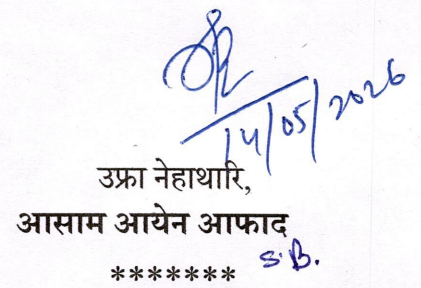 14/05/2026
उफ्रा नेहाथारि,
आसाम आयेन आफाद
S.B.
*******